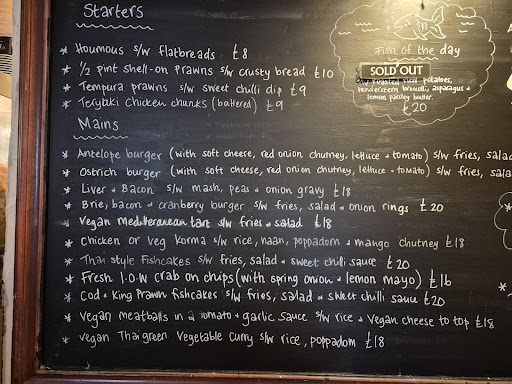 Starters
* Houmous s/w flatbreads £8
* 1/2 pint shell-on prawns s/w crusty bread £10
* Tempura prawns s/w sweet chilli dip £9
* Teriyaki chicken chunks (battered) £9
Fish of the day
SOLD OUT
s/w roasted new potatoes,
tenderstem broccoli, asparagus &
lemon parsley butter.
£20
Mains
* Antelope burger (with soft cheese, red onion chutney, lettuce + tomato) s/w fries, salad
* Ostrich burger (with soft cheese, red onion chutney, lettuce + tomato) s/w fries, sala
* Liver + Bacon s/w mash, peas + onion gravy £18
* Brie, bacon + cranberry burger s/w fries, salad + onion rings £20
* Vegan Mediterranean tart s/w fries + salad £18
* Chicken or Veg Korma s/w rice, naan, poppadom + mango chutney £18
* Thai style Fishcakes s/w fries, salad + sweet chilli sauce £20
* Fresh I.O.W crab on chips (with spring onion + lemon mayo) £16
* Cod + King Prawn fishcakes s/w fries, salad + sweet chilli sauce £20
* Vegan meatballs in a tomato + garlic sauce s/w rice + vegan cheese to top £18
* Vegan Thai green Vegetable curry s/w rice, poppadom £18